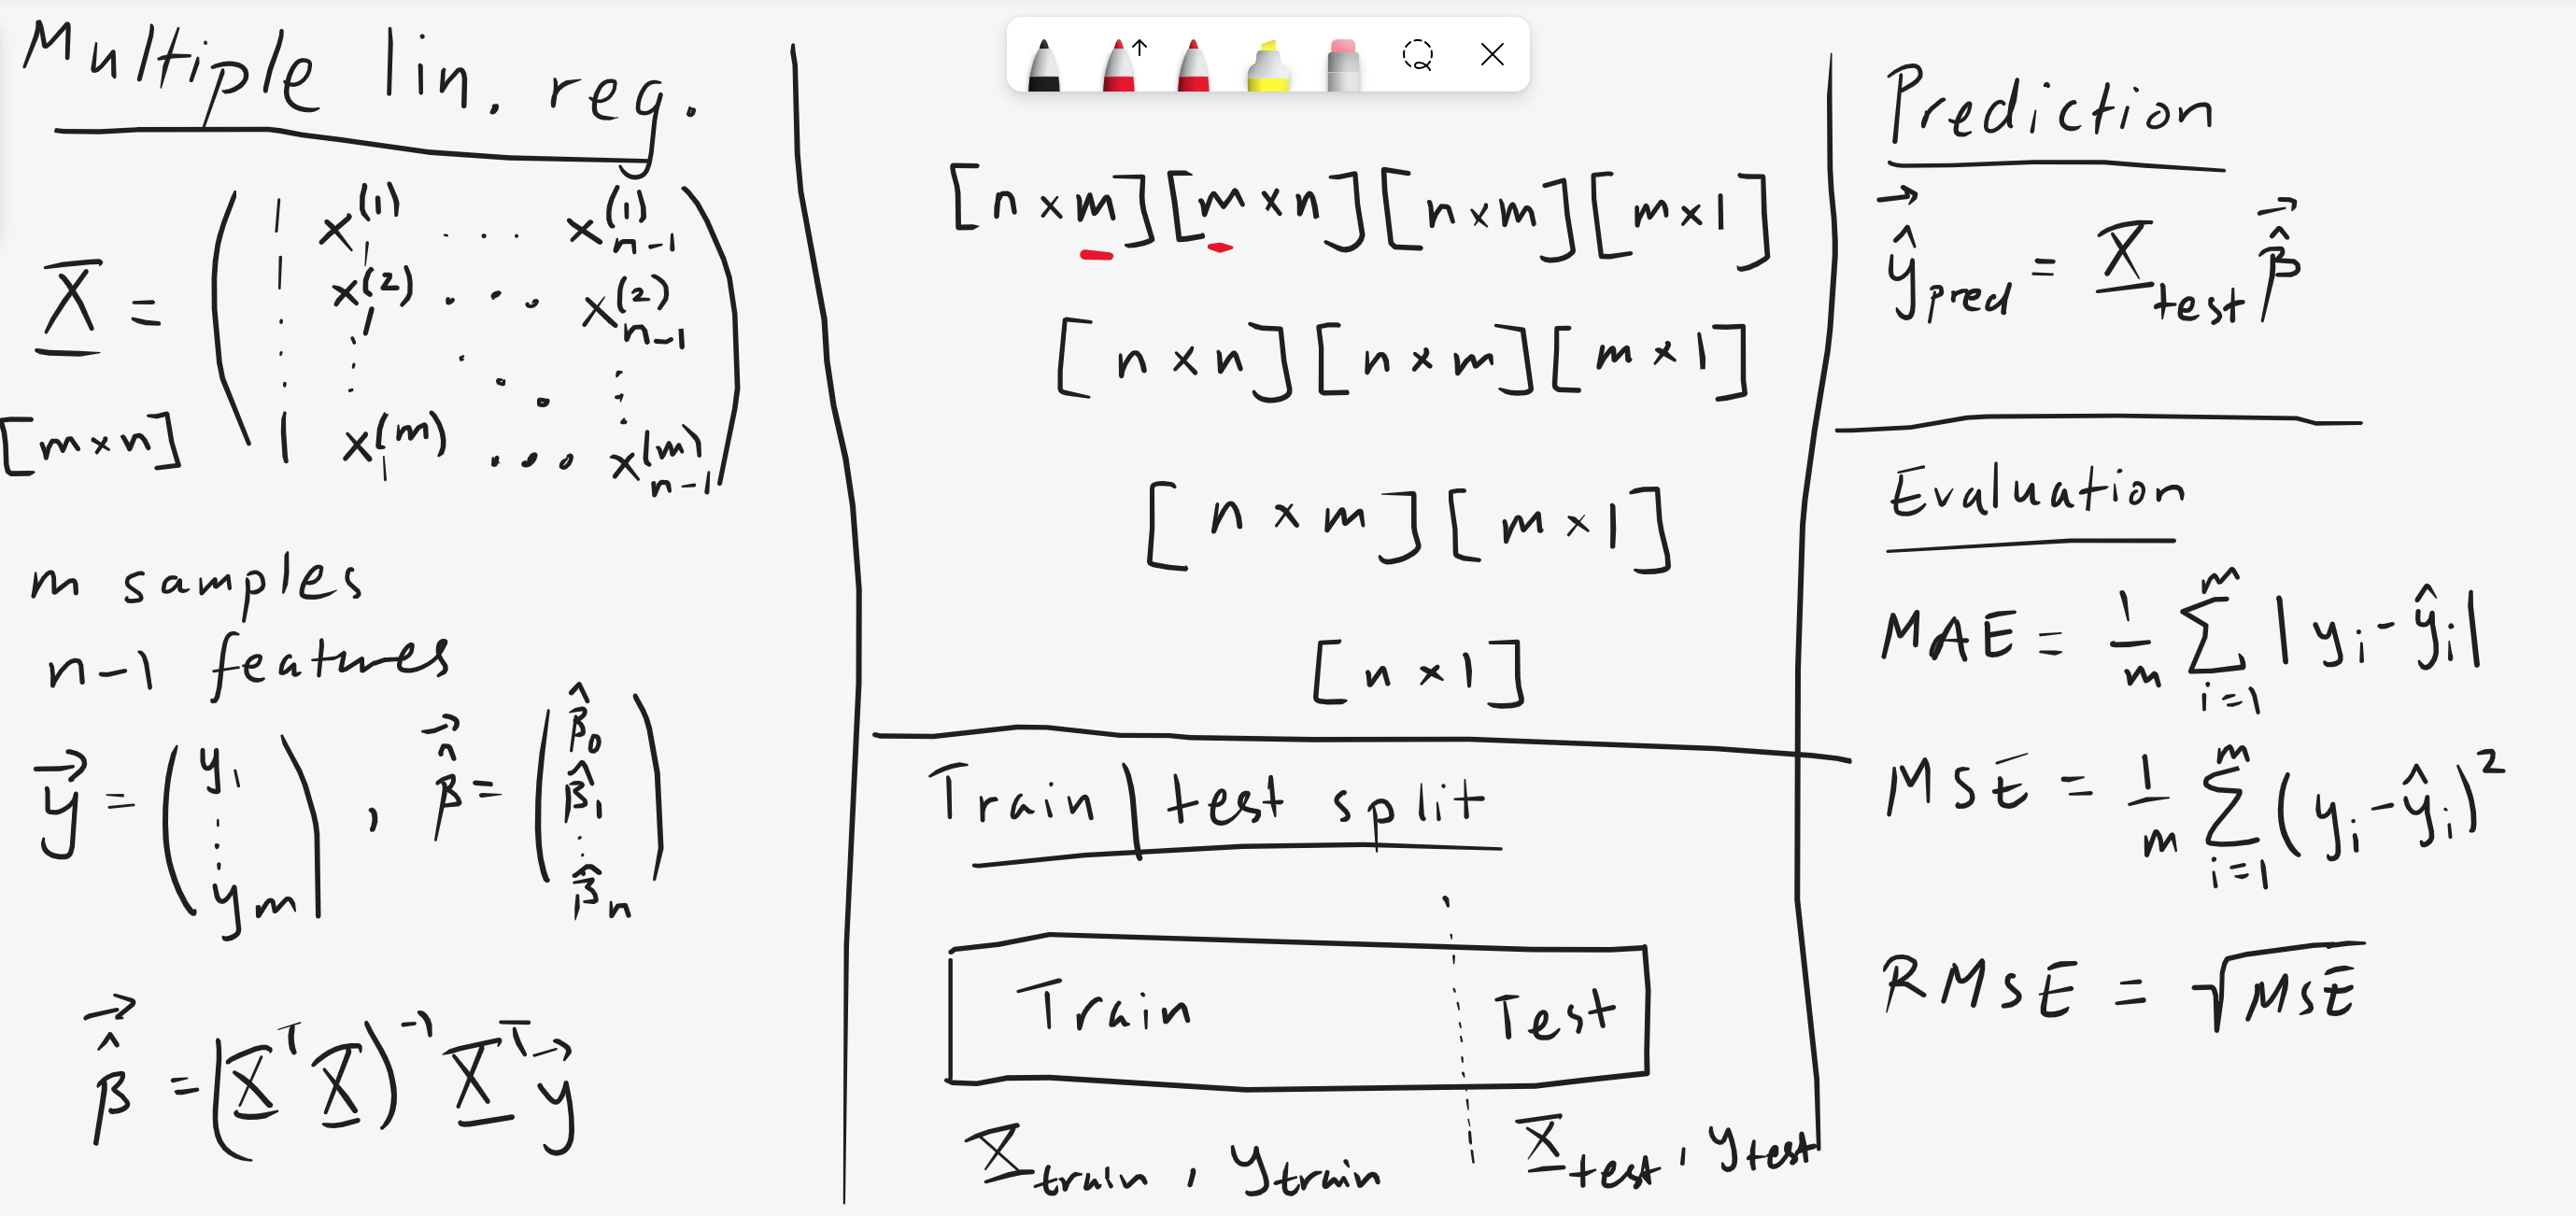 Multiple lin. reg.
X = ( 1 x₁⁽¹⁾ ... xₙ₋₁⁽¹⁾
1 x₁⁽²⁾ ... xₙ₋₁⁽²⁾
⋮ ⋮ ⋱ ⋮
[m×n] 1 x₁⁽ᵐ⁾ ... xₙ₋₁⁽ᵐ⁾ )
m samples
n-1 features
y⃗ = ( y₁ ⋮ yₘ ) , β̂⃗ = ( β̂₀ β̂₁ ⋮ β̂ₙ )
β̂⃗ = (XᵀX)⁻¹ Xᵀy⃗
[n×m][m×n][n×m][m×1]
[n×n][n×m][m×1]
[n×m][m×1]
[n×1]
Train | test split
Train Test
X train , y train X test , y test
Prediction
ŷ⃗ pred = X test β̂⃗
Evaluation
MAE = 1/m ∑ᵢ₌₁ᵐ |yᵢ-ŷᵢ|
MSE = 1/m ∑ᵢ₌₁ᵐ (yᵢ-ŷᵢ)²
RMSE = √MSE